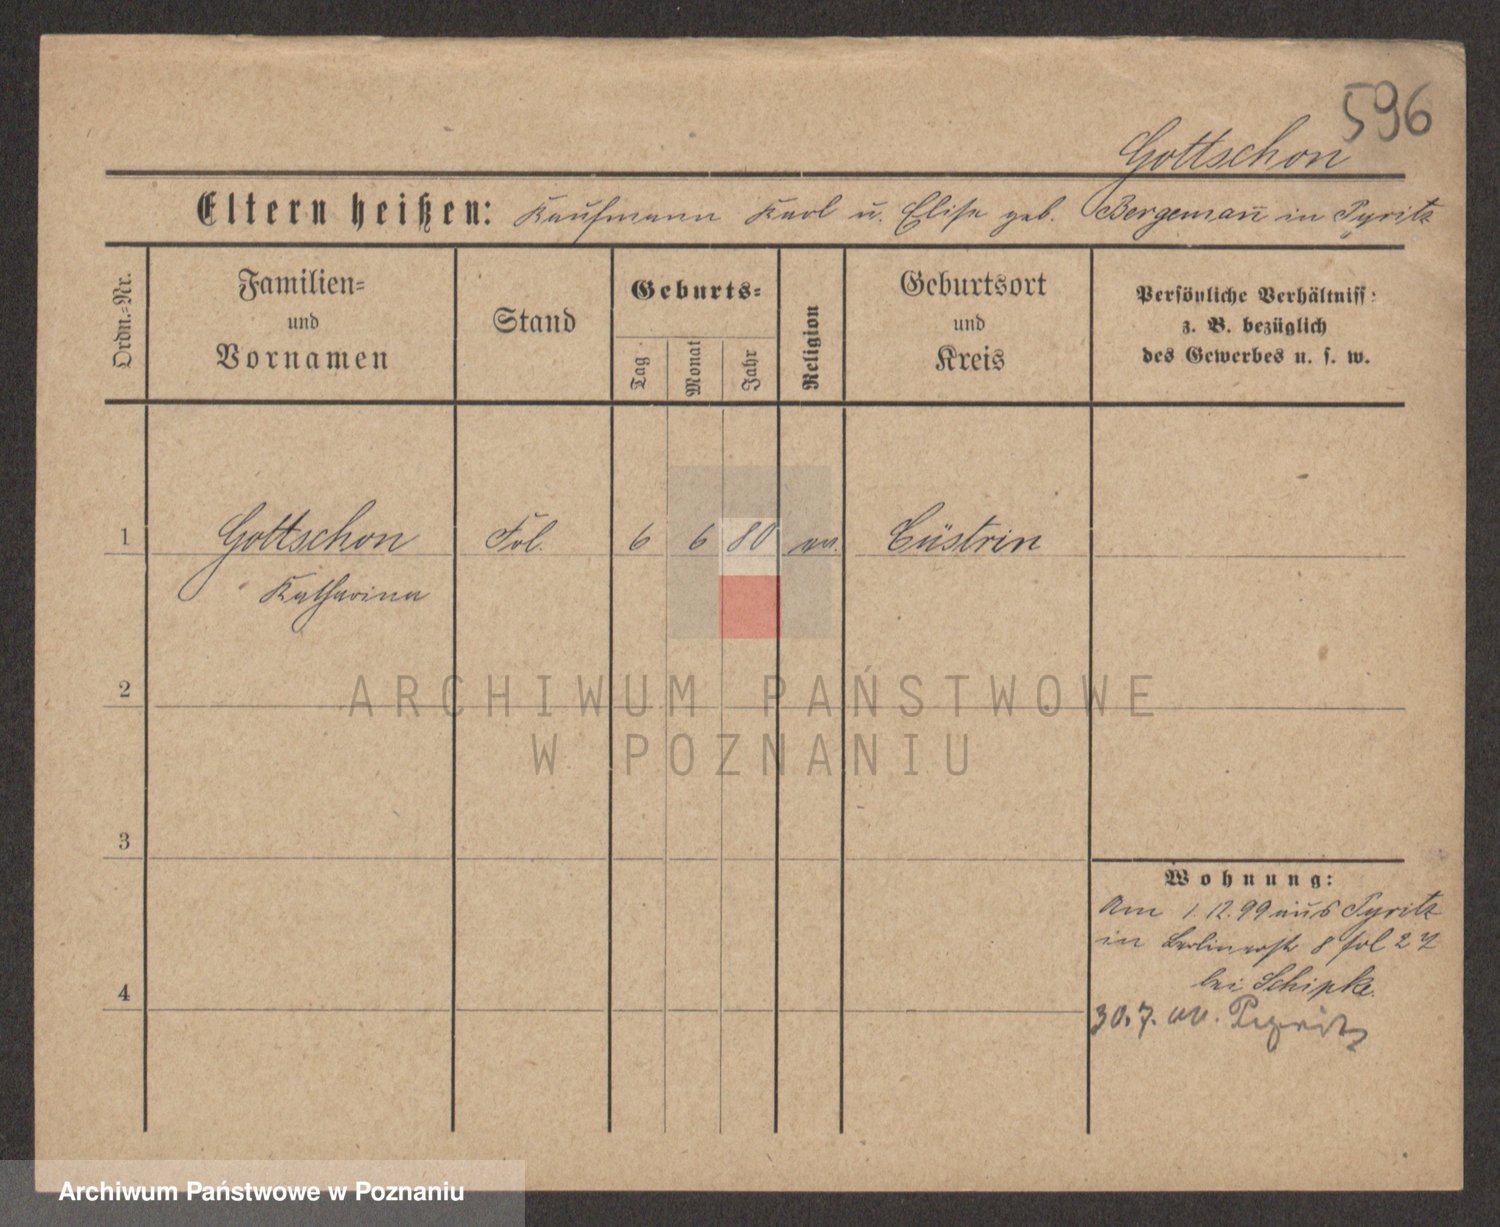 596
Gottschon
Eltern heißen: Kaufmann Karl u. Elise geb. Bergemañ in Pyritz
Ordn.-Nr.
Familien-
und
Vornamen
Stand
Geburts-
Tag
Monat
Jahr
Religion
Geburtsort
und
Kreis
Persönliche Verhältniss:
z. B. bezüglich
des Gewerbes u. s. w.
1 Gottschon 6 6 80 ev. Cüstrin
Katharina
2
ARCHIWUM PAŃSTWOWE
W POZNANIU
3
Wohnung:
Am 1.12.99 aus Pyritz
in Berlinerstr 8
bei Schipke.
4
30.7. Pyritz
Archiwum Państwowe w Poznaniu